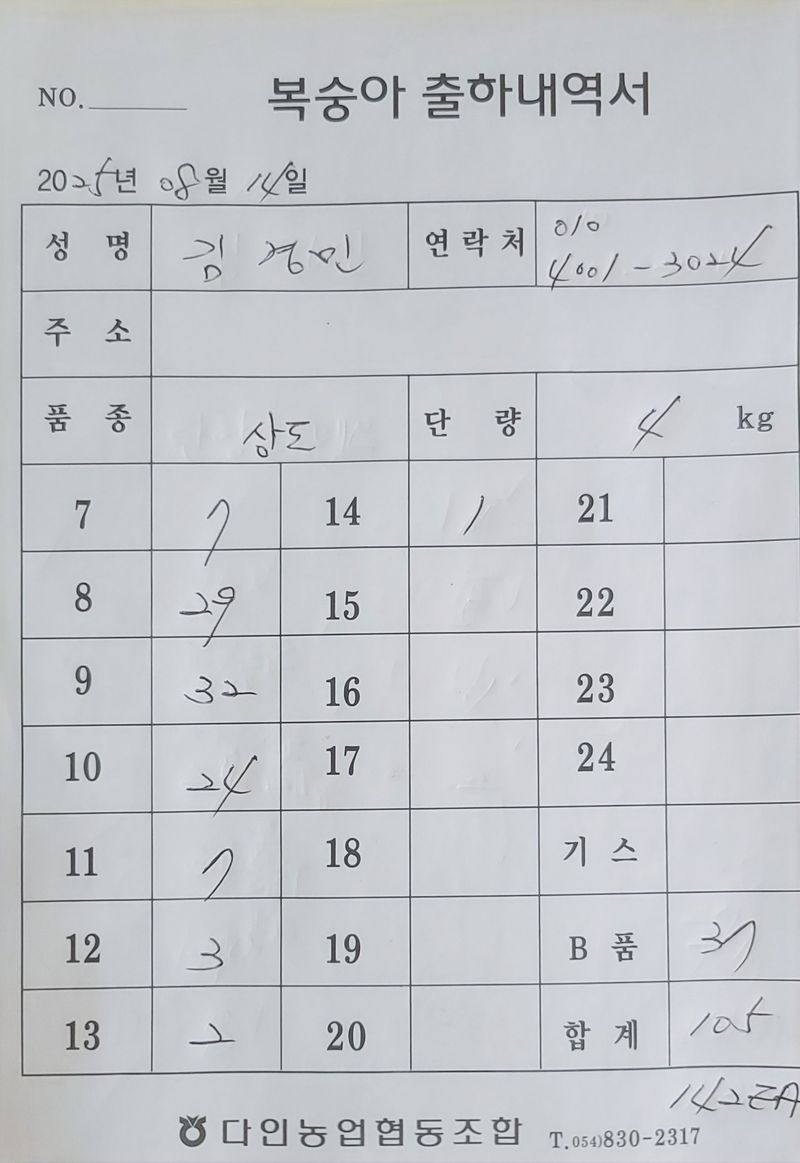 NO.
복숭아 출하내역서
2025년 08월 14일
성 명 김경민 연락처 010
4001-3024
주 소
품 종 상도 단 량 4 kg
7 7 14 1 21
8 29 15 22
9 32 16 23
10 24 17 24
11 7 18 기 스
12 3 19 B 품 37
13 2 20 합 계 105
142EA
다인농업협동조합 T.054)830-2317